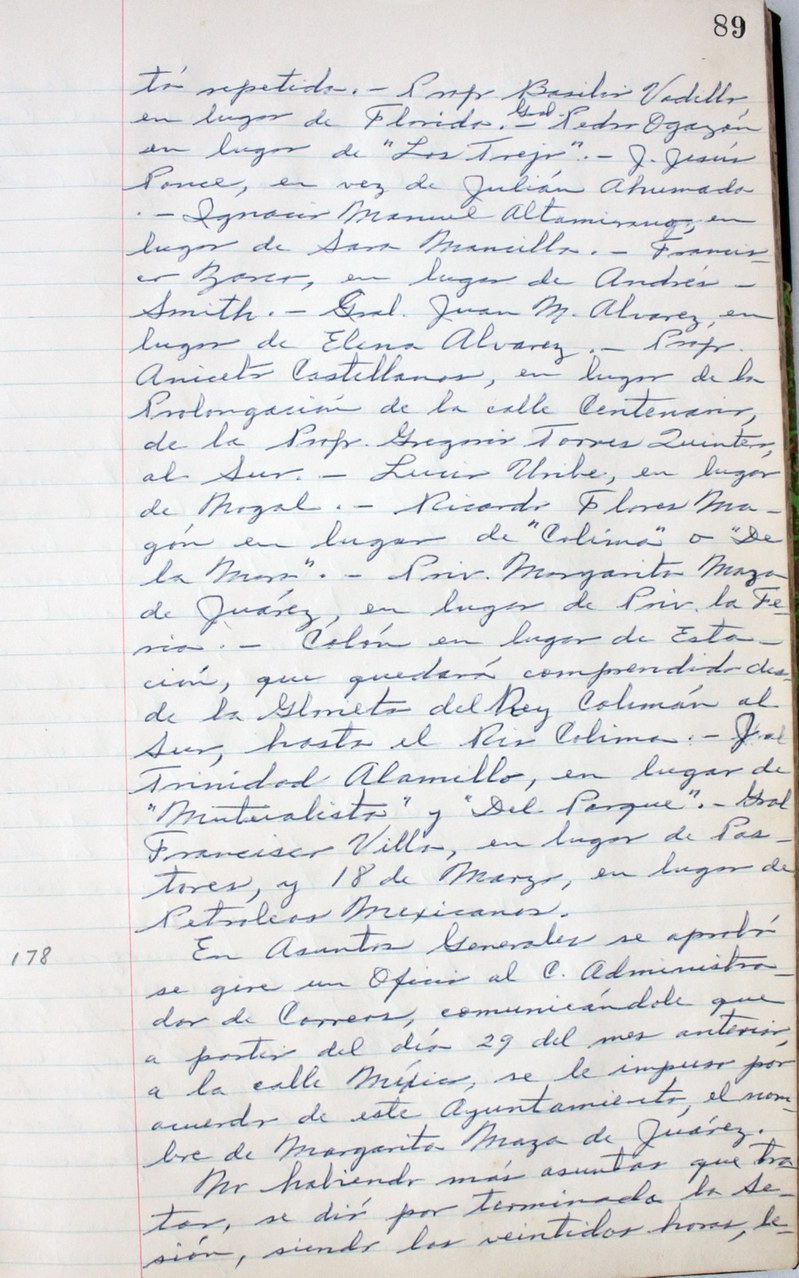 89
tá repetida. - Profr. Basilio Vadillo,
en lugar de Florida. - Gral. Pedro Ogazón
en lugar de "Los Trejo". - J. Jesús
Ponce, en vez de Julián Ahumada
. - Ignacio Manuel Altamirano, en
lugar de Sara Mancilla. - Francis-
co Zarco, en lugar de Andrés -
Smith. - Gral. Juan M. Alvarez, en
lugar de Elena Alvarez. - Profr.
Aniceto Castellanos, en lugar de la
Prolongación de la calle Centenario,
de la Profr. Gregorio Torres Quintero,
al Sur. - Lucio Uribe, en lugar
de Nogal. - Ricardo Flores Ma-
gón en lugar de "Colima" o "De
la Mora". - Priv. Margarita Maza
de Juárez, en lugar de Priv. la Fe-
ria. - Colón en lugar de Esta-
ción, que quedará comprendida des-
de la Glorieta del Rey Colimán al
Sur, hasta el Río Colima. -
Trinidad Alamillo, en lugar de
"Mutualista" y "Del Parque". - Gral
Francisco Villa, en lugar de Pas-
tores, y 18 de Marzo, en lugar de
Petroleos Mexicanos.
178 En Asuntos Generales se aprobó
se gire un Oficio al C. Administra-
dor de Correos, comunicándole que
a partir del día 29 del mes anterior,
a la calle México, se le impuso por
acuerdo de este Ayuntamiento, el nom-
bre de Margarita Maza de Juárez.
No habiendo más asuntos que tra-
tar, se dió por terminada la Se-
sión, siendo las veintidos horas, le-